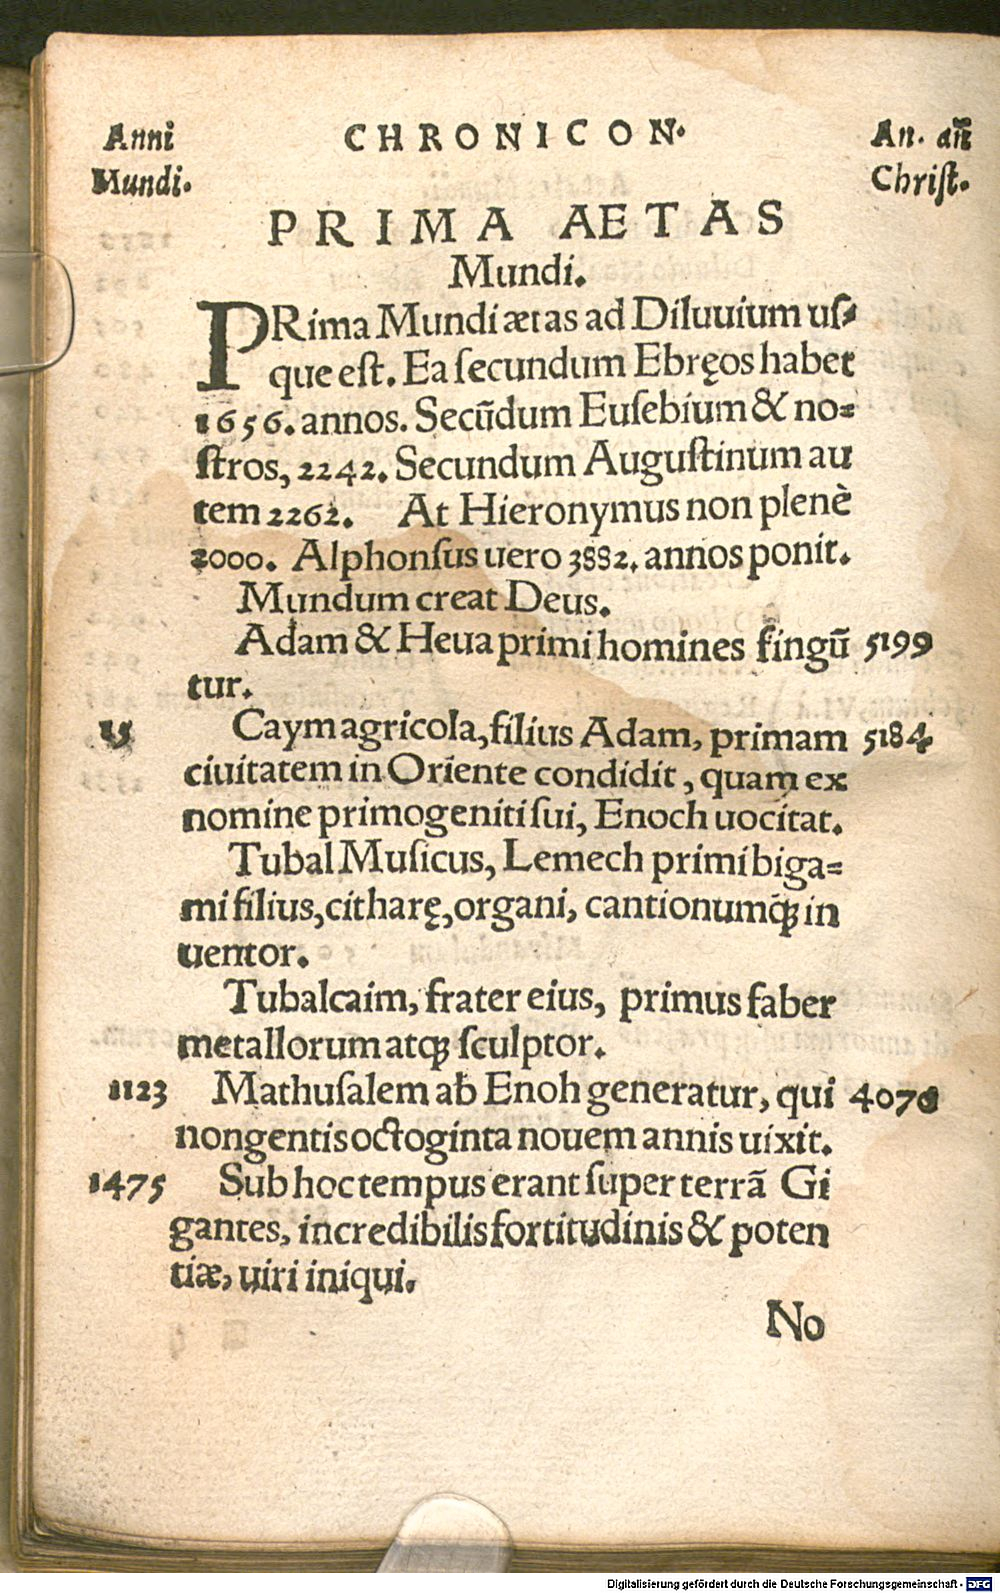 Anni CHRONICON. An. añ
Mundi. Christ.
PRIMA AETAS
Mundi.
PRima Mundi ætas ad Diluuium uſ⸗
que eſt. Ea ſecundum Ebręos habet
1656. annos. Secūdum Euſebium & no⸗
ſtros, 2242. Secundum Auguſtinum au
tem 2262. At Hieronymus non plenè
2000. Alphonſus uero 3882. annos ponit.
Mundum creat Deus.
Adam & Heua primi homines fingū 5199
tur.
15 Caym agricola, filius Adam, primam 5184
ciuitatem in Oriente condidit, quam ex
nomine primogeniti ſui, Enoch uocitat.
Tubal Muſicus, Lemech primi biga⸗
mi filius, citharę, organi, cantionumq́ꝫ in
uentor.
Tubalcaim, frater eius, primus faber
metallorum atqꝫ ſculptor.
1123 Mathuſalem ab Enoh generatur, qui 4076
nongentis octoginta nouem annis uixit.
1475 Sub hoc tempus erant ſuper terrā Gi
gantes, incredibilis fortitudinis & poten
tiæ, uiri iniqui.
No
Digitalisierung gefördert durch die Deutsche Forschungsgemeinschaft - DFG